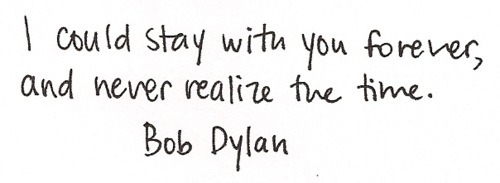 I could stay with you forever,
and never realize the time.
Bob Dylan